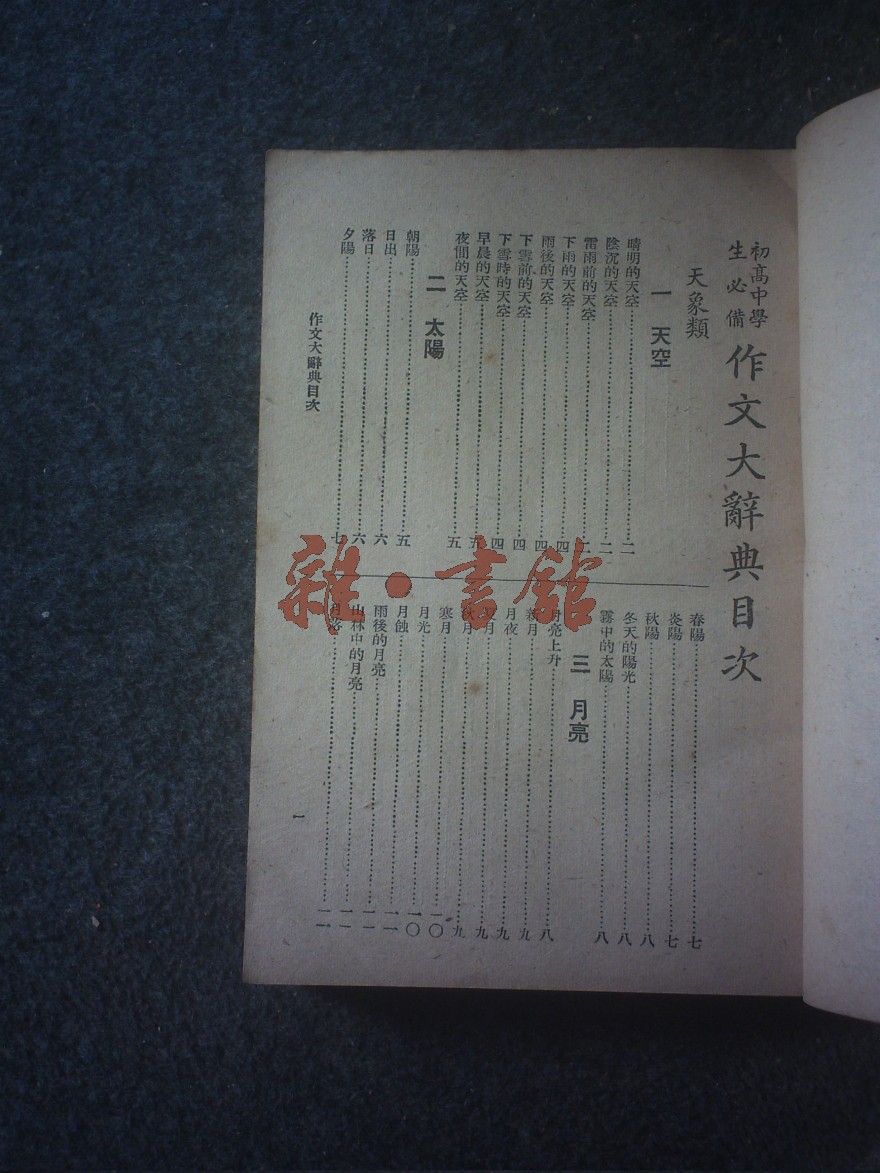 初高中學
生必備
作文大辭典目次
天象類
一 天空
晴明的天空……二
陰沉的天空……二
雷雨前的天空……三
下雨的天空……四
雨後的天空……四
下雪前的天空……四
下雪時的天空……四
早晨的天空……五
夜間的天空……五
二 太陽
朝陽……五
日出……六
落日……六
夕陽……七
春陽……七
炎陽……七
秋陽……八
冬天的陽光……八
霧中的太陽……八
三 月亮
月亮上升……八
新月……九
月夜……九
月……九
秋月……九
寒月……一〇
月光……一〇
月蝕……一一
雨後的月亮……一一
山林中的月亮……一一
月落……一一
作文大辭典目次
一
雜·書館